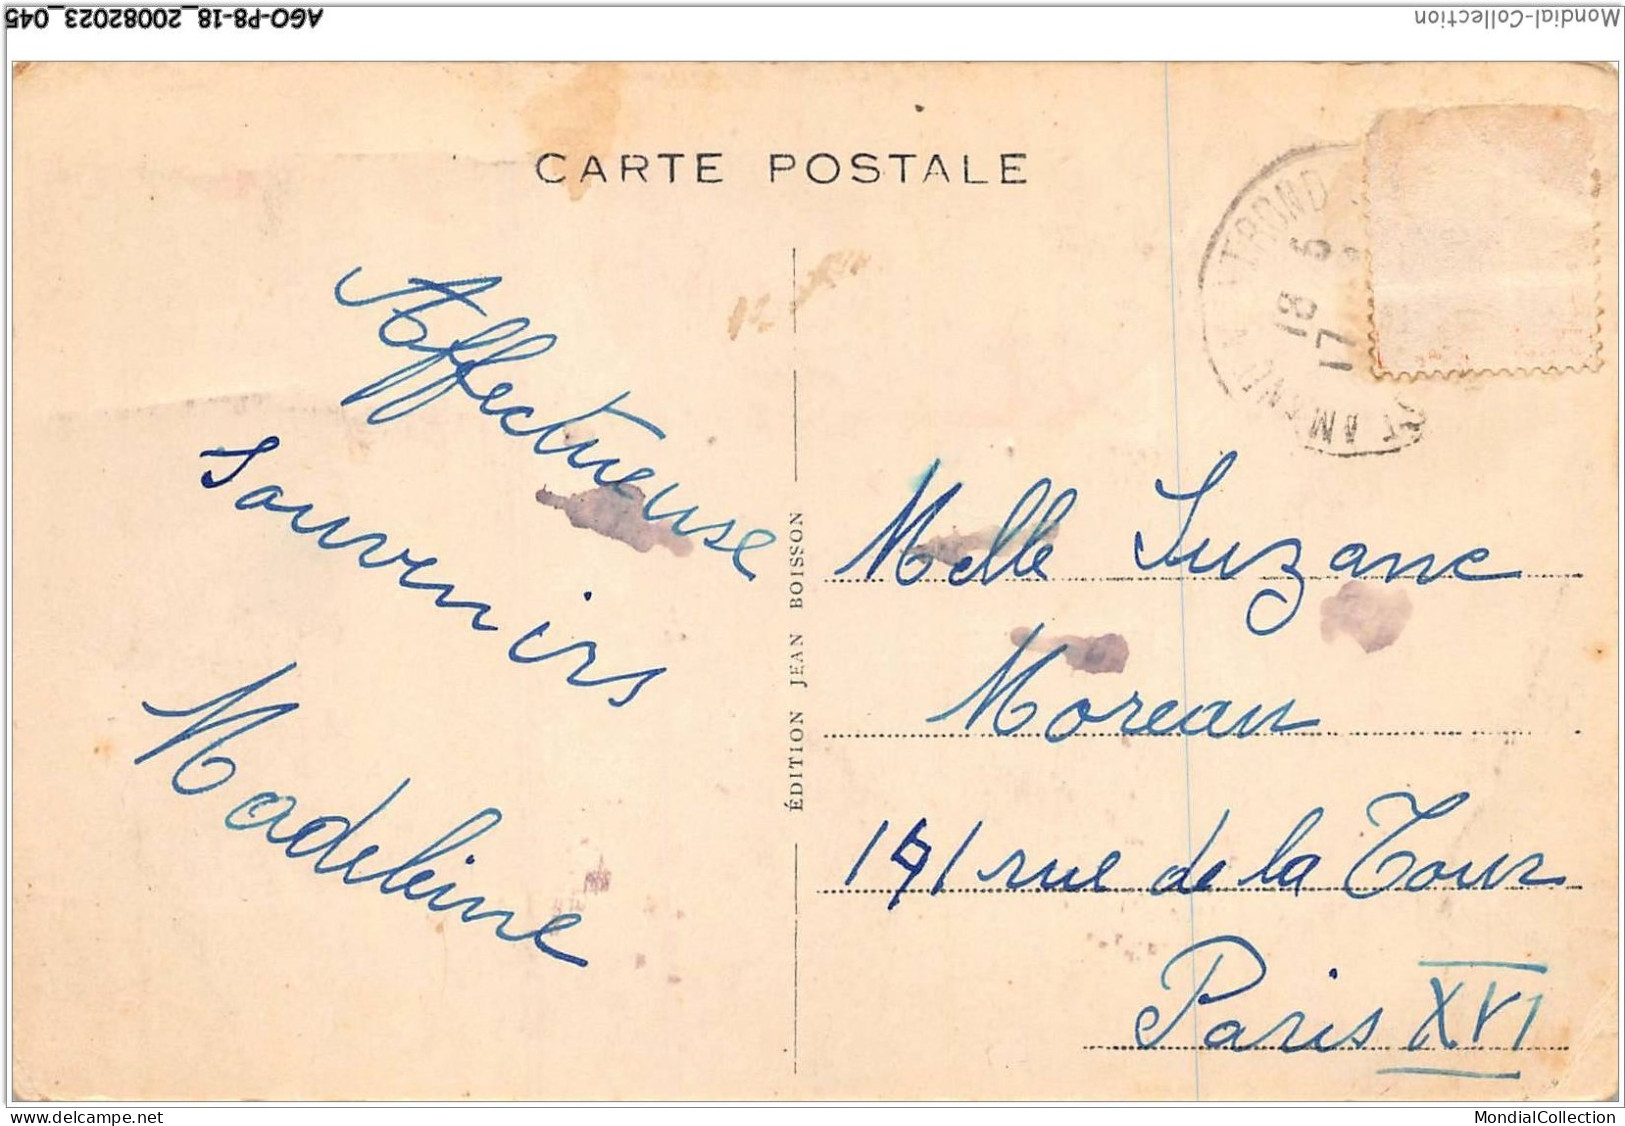 AGO-P8-18_20082023_045
Mondial-Collection
CARTE POSTALE
18 6
17
Affectueuse
souvenirs
Madeleine
ÉDITION JEAN BOISSON
Melle Suzane
Moreau
141 rue de la Tour
Paris XVI
www.delcampe.net
MondialCollection